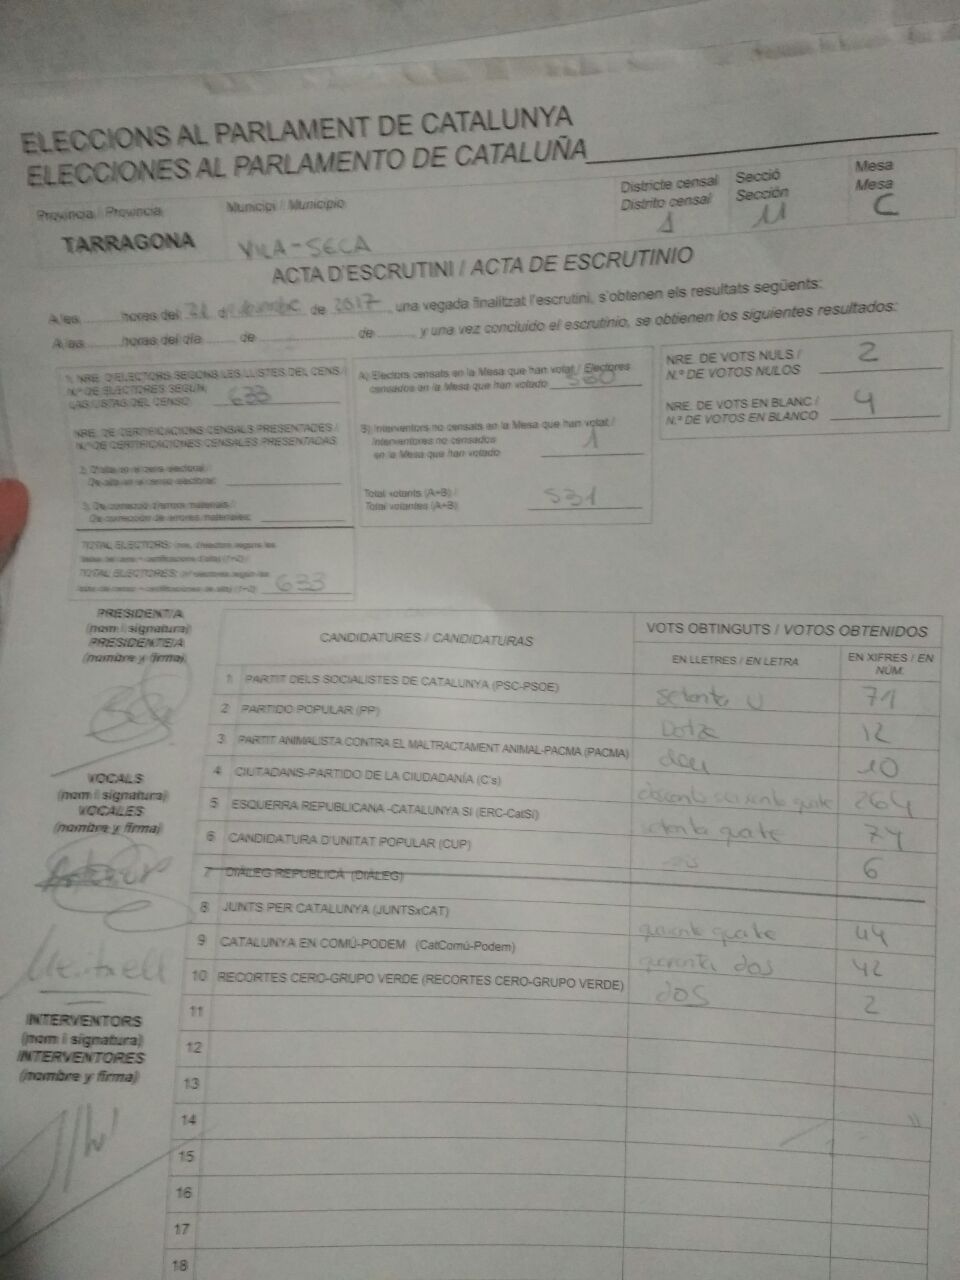 ELECCIONS AL PARLAMENT DE CATALUNYA
ELECCIONES AL PARLAMENTO DE CATALUÑA
Província / Provincia
TARRAGONA
Municipi / Municipio
VILA-SECA
Districte censal
Distrito censal
1
Secció
Sección
11
Mesa
Mesa
C
ACTA D'ESCRUTINI / ACTA DE ESCRUTINIO
A les horas del 21 de de 2017, una vegada finalitzat l'escrutini, s'obtenen els resultats següents:
A las horas del día de de , y una vez concluido el escrutinio, se obtienen los siguientes resultados:
1) NRE. D'ELECTORS SEGONS LES LLISTES DEL CENS /
N.º DE ELECTORES SEGÚN
LAS LISTAS DEL CENSO 633
NRE. DE CERTIFICACIONS CENSALS PRESENTADES /
N.º DE CERTIFICACIONES CENSALES PRESENTADAS
2) D'alta en el cens electoral /
De alta en el censo electoral:
3) De correcció d'errors materials /
De corrección de errores materiales:
TOTAL ELECTORS:
TOTAL ELECTORES: 633
A) Electors censats en la Mesa que han votat / Electores
censados en la Mesa que han votado 530
B) Interventors no censats en la Mesa que han votat /
Interventores no censados
en la Mesa que han votado 1
Total votants (A+B) /
Total votantes (A+B) 531
NRE. DE VOTS NULS /
N.º DE VOTOS NULOS 2
NRE. DE VOTS EN BLANC /
N.º DE VOTOS EN BLANCO 4
PRESIDENT/A
(nom i signatura)
PRESIDENTE/A
(nombre y firma)
VOCALS
(nom i signatura)
VOCALES
(nombre y firma)
INTERVENTORS
(nom i signatura)
INTERVENTORES
(nombre y firma)
CANDIDATURES / CANDIDATURAS
VOTS OBTINGUTS / VOTOS OBTENIDOS
EN LLETRES / EN LETRA
EN XIFRES / EN NÚM.
1 PARTIT DELS SOCIALISTES DE CATALUNYA (PSC-PSOE) setanta u 71
2 PARTIDO POPULAR (PP) Dotze 12
3 PARTIT ANIMALISTA CONTRA EL MALTRACTAMENT ANIMAL-PACMA (PACMA) deu 10
4 CIUTADANS-PARTIDO DE LA CIUDADANÍA (C's) 264
5 ESQUERRA REPUBLICANA-CATALUNYA SÍ (ERC-CatSí) setanta quatre 74
6 CANDIDATURA D'UNITAT POPULAR (CUP) 6
7 DIÀLEG REPUBLICÀ (DIÀLEG)
8 JUNTS PER CATALUNYA (JUNTSxCAT) quaranta quatre 44
9 CATALUNYA EN COMÚ-PODEM (CatComú-Podem) quaranta dos 42
10 RECORTES CERO-GRUPO VERDE (RECORTES CERO-GRUPO VERDE) dos 2
11
12
13
14
15
16
17
18